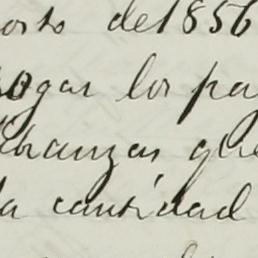 osto de 1856
ogar los pa
branzas, que
la cantidad